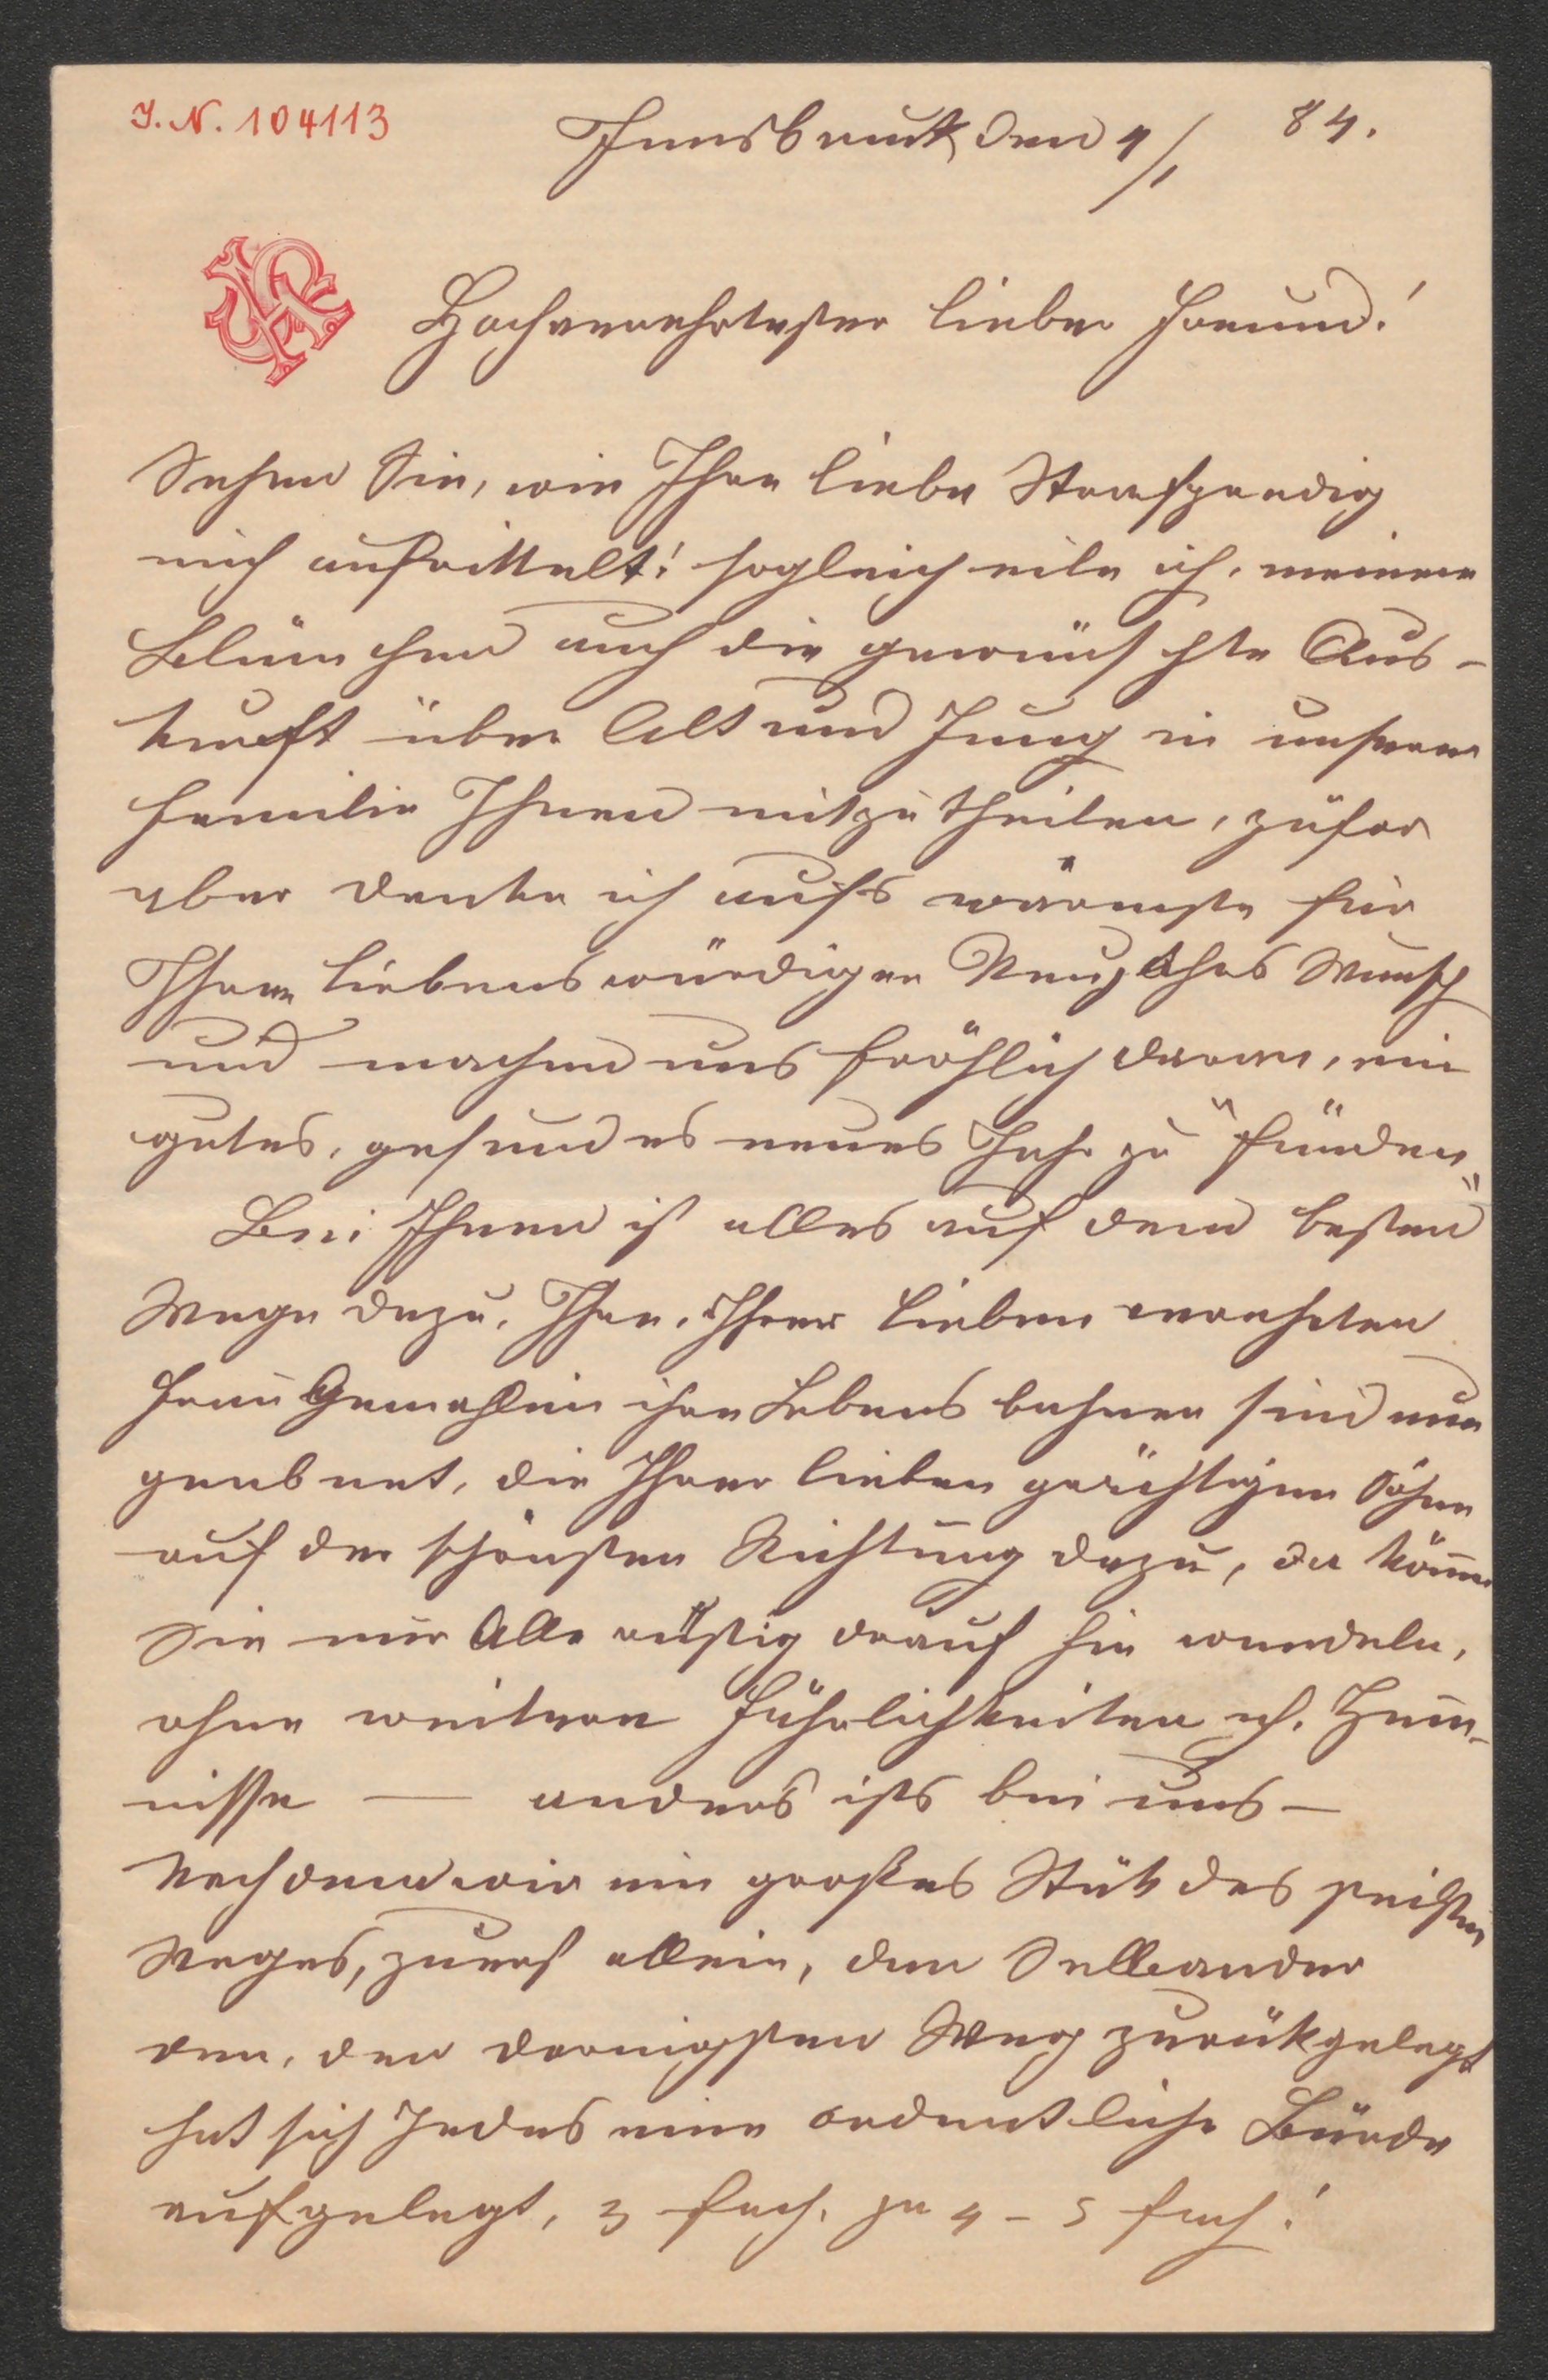 I. N. 104113
Innsbruck den 4/1 84.
Hochverehrtester lieber Freund!
Sehen Sie, wie Ihre liebe Strafpredig
mich aufrüttelt! sogleich eile ich, meinem
Blümchen auch die gewünschte Aus-
kunft über Alt und Jung in unserer
Familie Ihnen mitzutheilen, zufor
aber danke ich aufs wärmste für
Ihren liebenswürdigen Neujahrs Wunsch
und machen uns fröhlich daran, ein
gutes, gesundes neues Jahr zu "finden"
Bei Ihnen ist alles auf dem besten
Wege dazu, Ihre, Ihrer lieben verehrten
Frau Gemahlin ihre Lebensbahnen sind nun
geebnet, die Ihrer lieben Söhne
auf der schönsten Richtung dazu, da könen
Sie nur Alle rüstig drauf hin wandeln,
ohne weitere Fährlichkeiten
nisse — anders ists bei uns —
Nachdem wir ein großes Stük des
Weges, zuerst allein, dan Selbander
den, den dornigsten Weg zurükgelegt
hat sich Jedes eine ordentliche Bürde
aufgelegt, 3 fach, ja 4 - 5 fach!